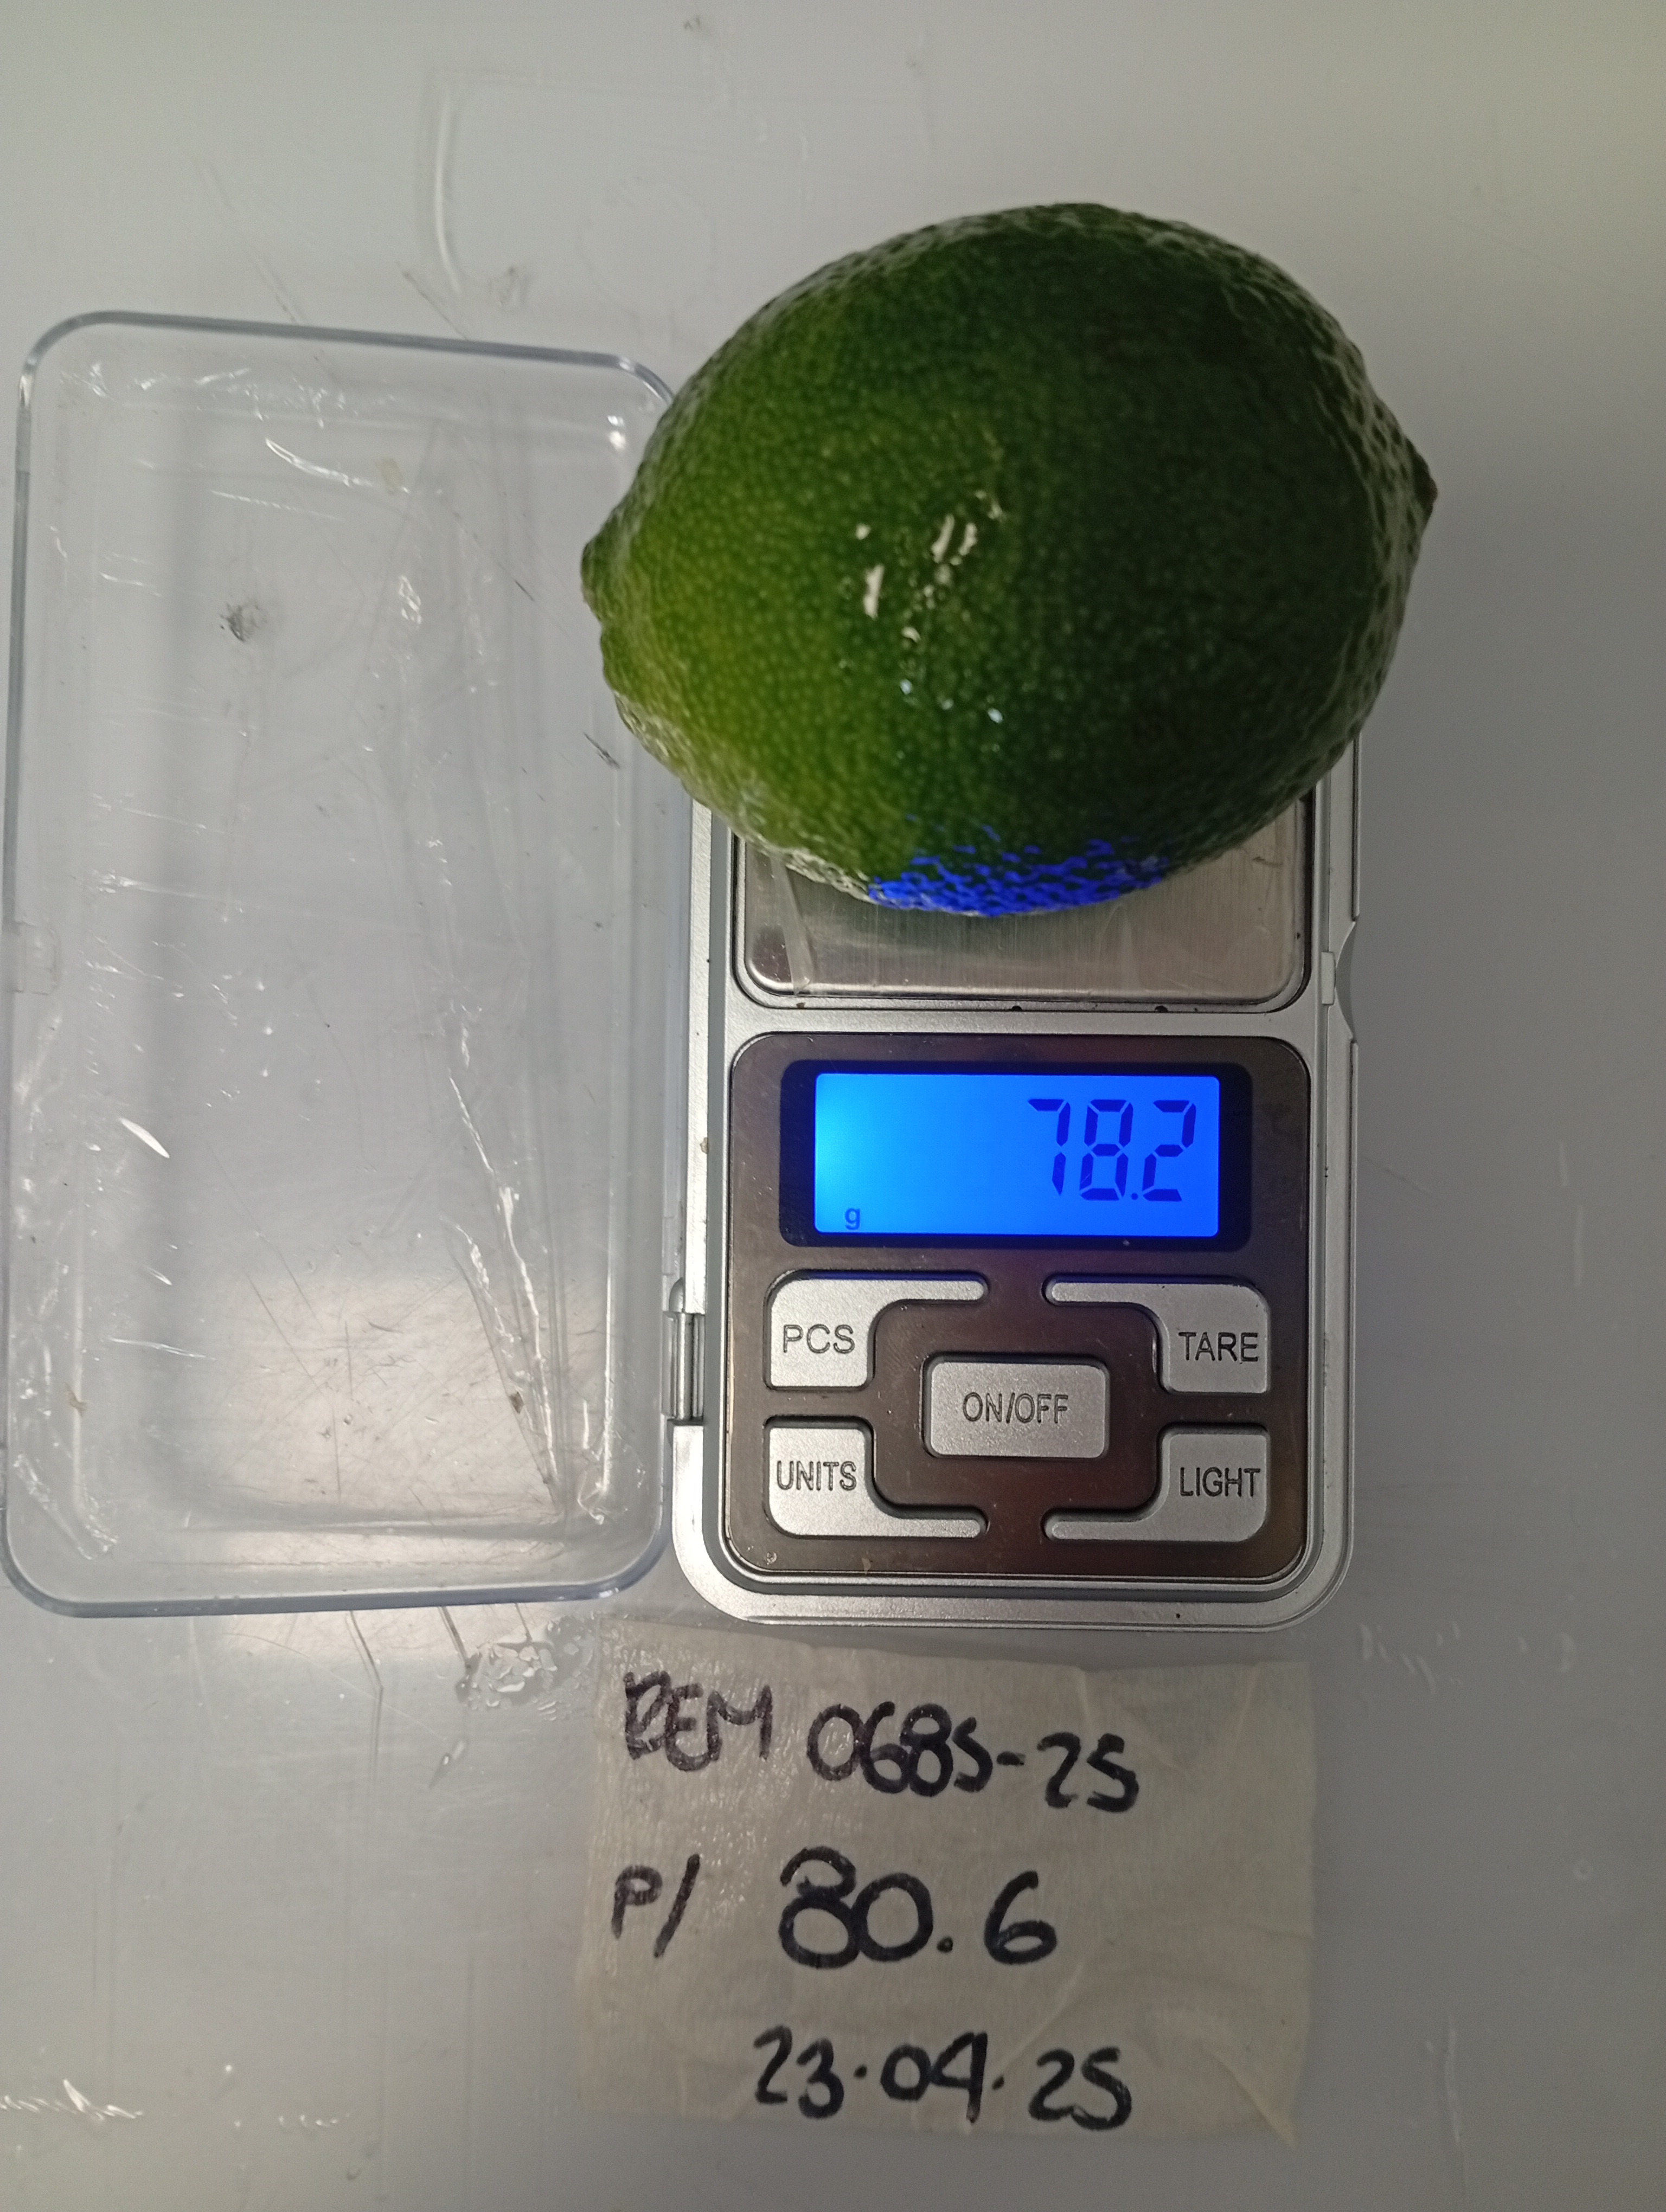 78.2
g
PCS
TARE
ON/OFF
UNITS
LIGHT
REM 0685-25
P/ 80.6
23.04.25